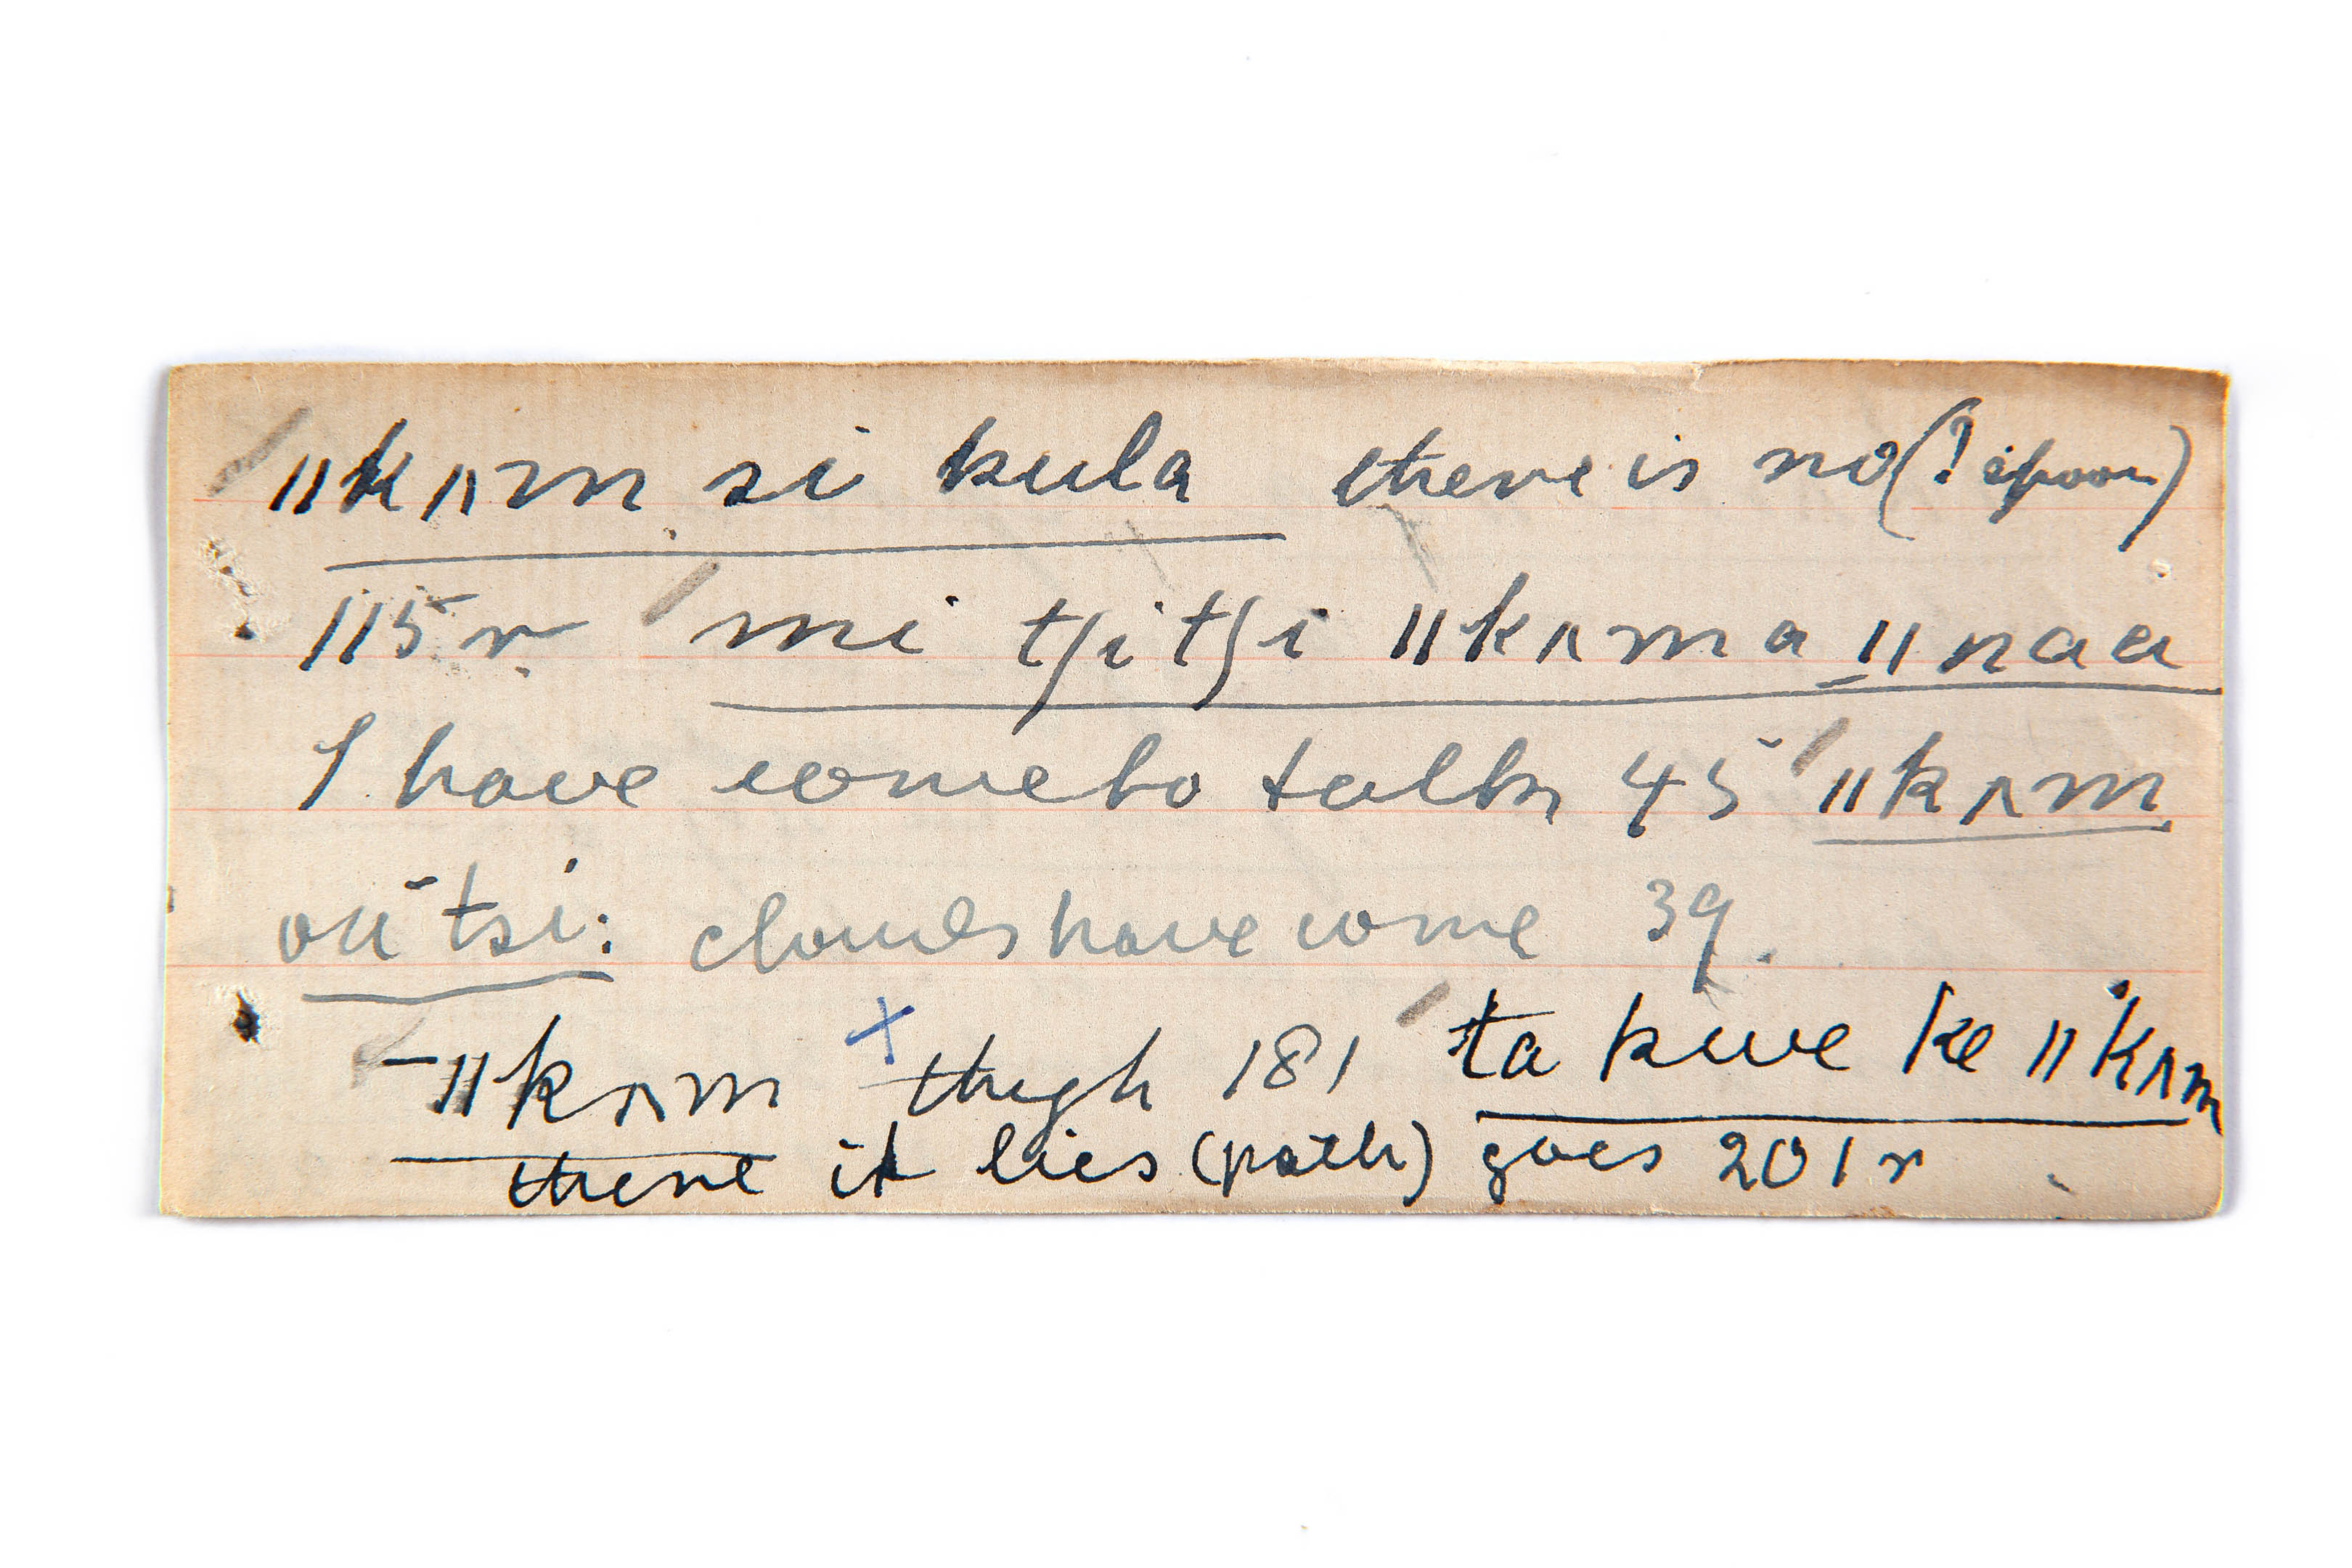 ǁkʌm si kula there is no (? spoon)
115r mi tʃitʃi ǁkʌma ǁnaa
I have come to talk 45 ǁkʌm
oú tsi: clouds have come 39.
–ǁkʌm + thigh 181 ta kwe ke ǁkʌm
there it lies (path) goes 201r